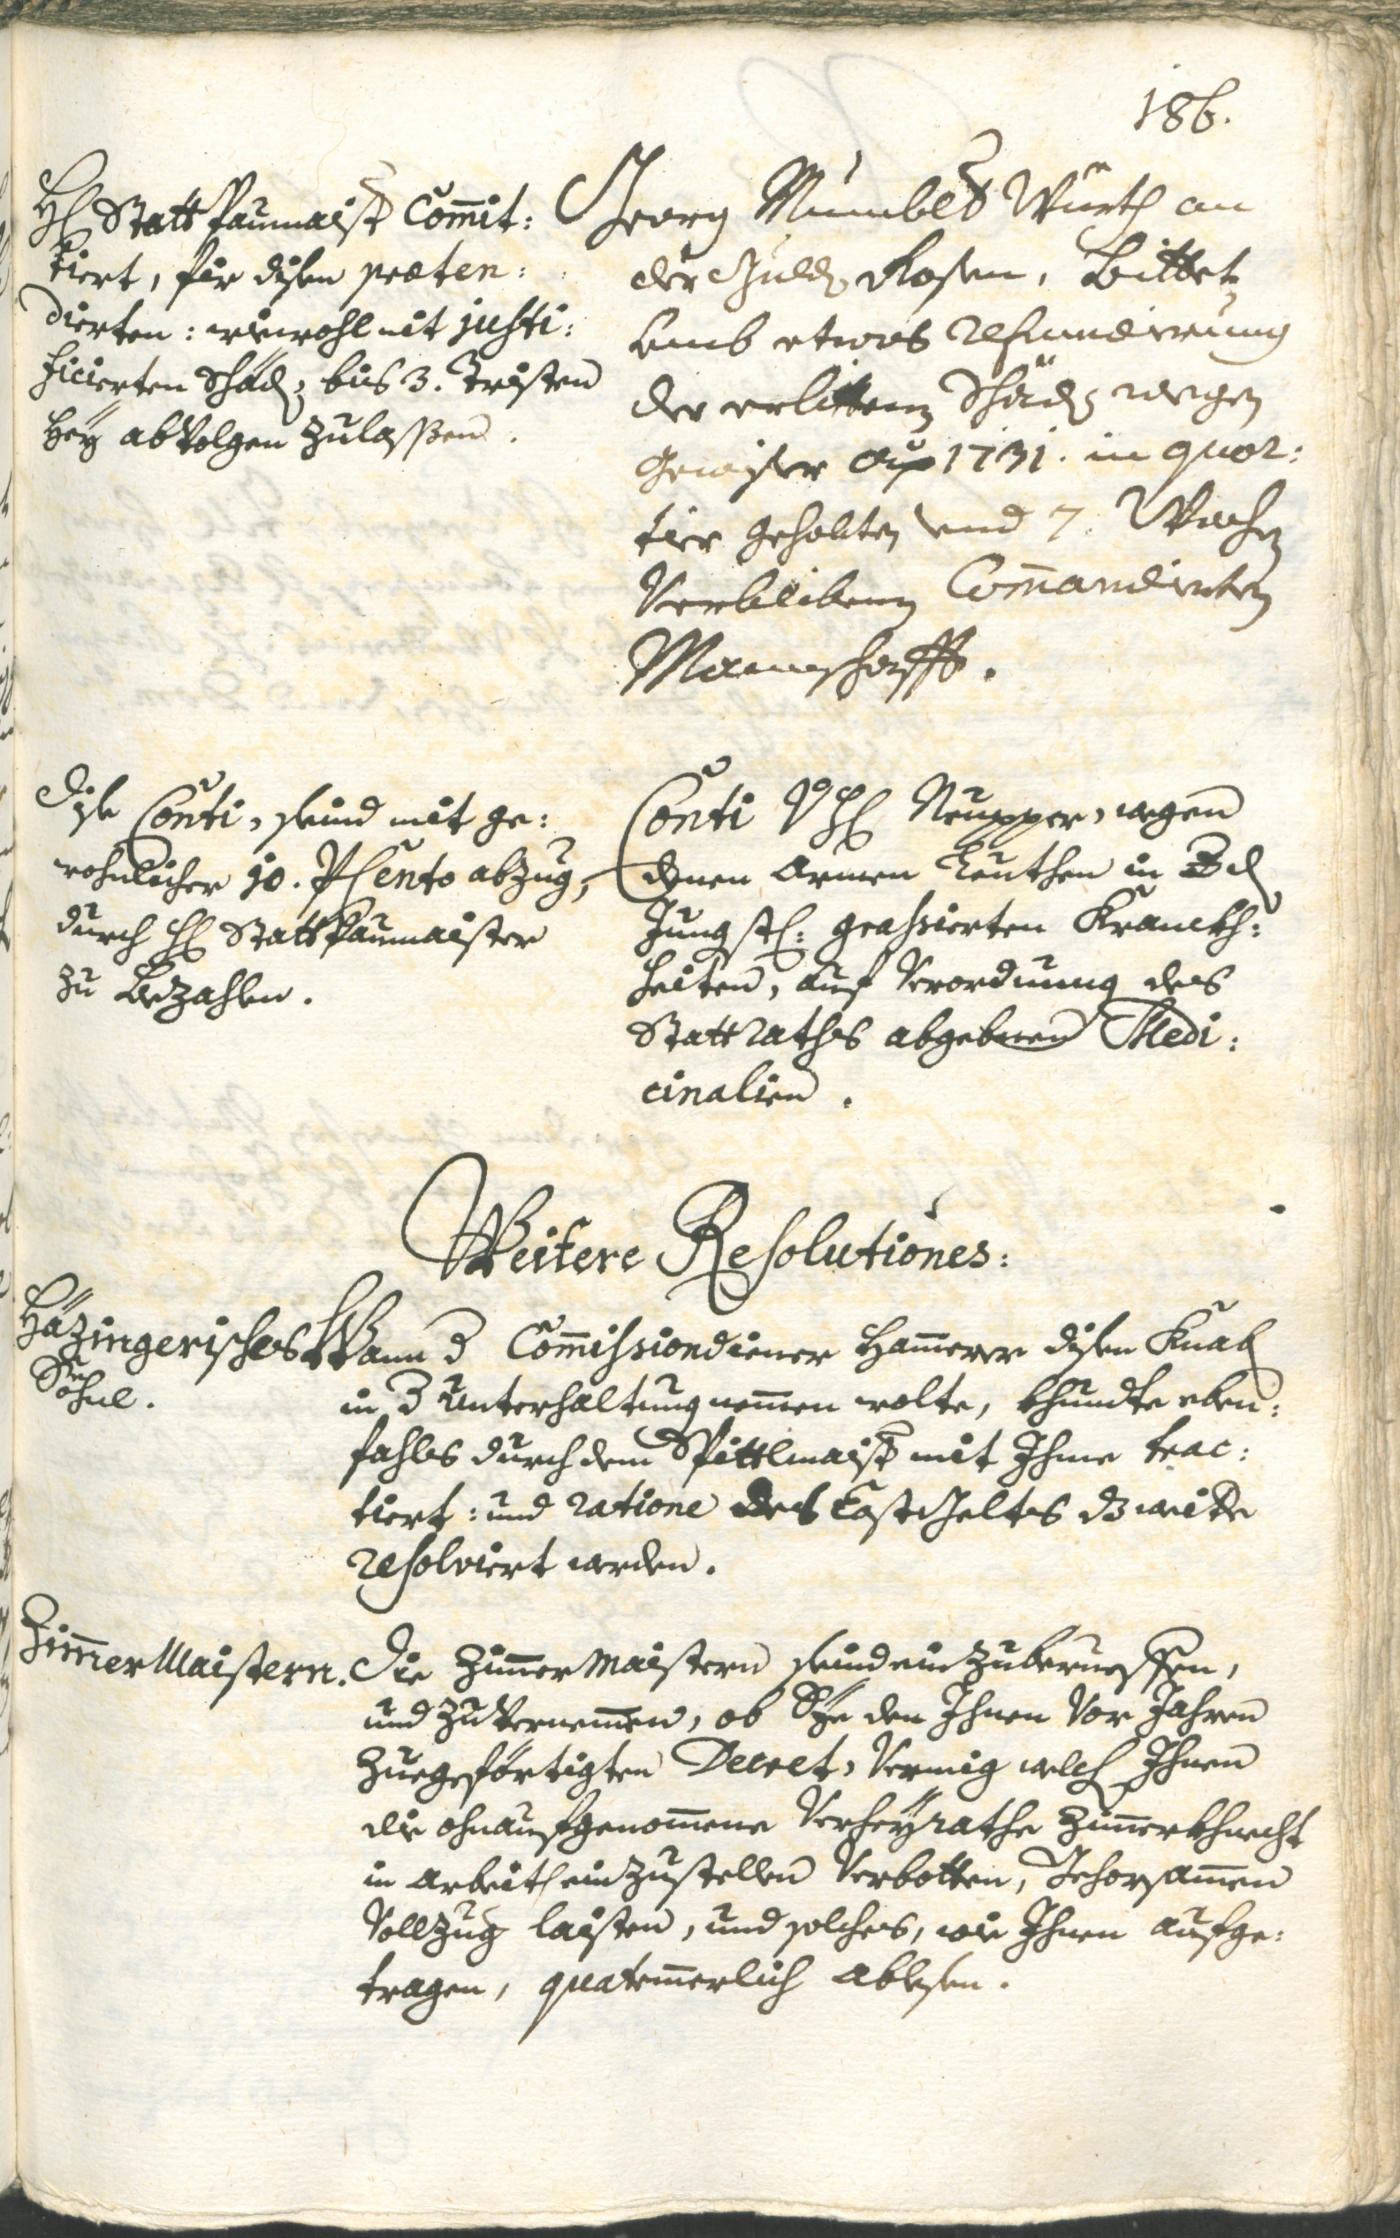 186.
H Statt Paumaist Com̄it:
tiert, für disen præten:
dierten: wiewohl nit justi:
ficierten Schad, bis 3. Tristen
Heÿ abvolgen zulassen.
Georg Würth an
der Guld Rosen, Bittet
umb etwas refundierung
der erlittenen Schäd wegen
gewister Aõ 1731. in quar:
tier gehabten und 7. Wochen
verblibenen Com̄andierten
Mannschafft.
Dise Conti, seind mit ge:
wohnlicher 10. P Cento abzug,
durch H Statt Paumaister
zu Bezahlen.
Conti wegen
denen Armen Leuthen in d
Jungst: grassierten Kranckh:
heiten, auf Verordnung des
Statt Raths abgebnen Medi:
cinalien.
Weitere Resolutiones:
Häzingerisches
Söhnl.
Wann d Com̄issiondiener Ham̄erer disen Knab
in d Unterhaltung nem̄en wolte, khundte eben:
fahls durch dem Spittlmaist mit Ihme trac:
tiert: und ratione des Costgelts dz weite
resolviert werden.
Zim̄er Maistern.
Die Zim̄er Maistern seind ein zuberueffen,
und zu vernem̄en, ob Sÿe den Ihnen vor Jahren
zuegeförtigten Decret, vermig welch Ihnen
die ohnaufgenom̄ene verheÿrathe Zim̄erkhnecht
in Arbeith einzustellen verbotten, Gehorsam̄en
Vollzug laisten, und solches, wie Ihnen aufge:
tragen, quatem̄erlich ablesen.